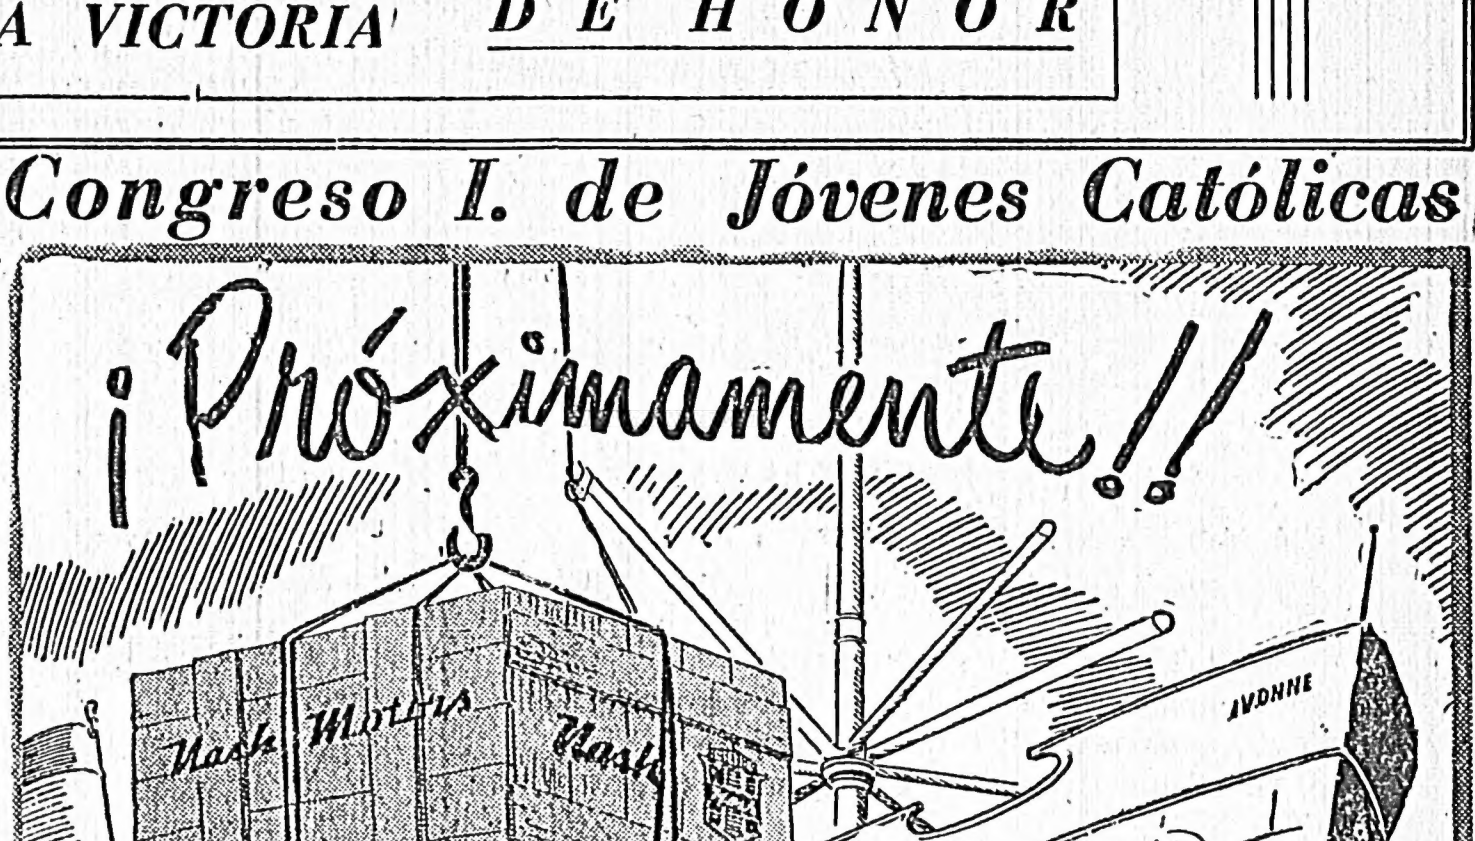 A VICTORIA
DE HONOR
Congreso I. de Jóvenes Católicas
¡Próximamente!!
Nash Motors
Nash